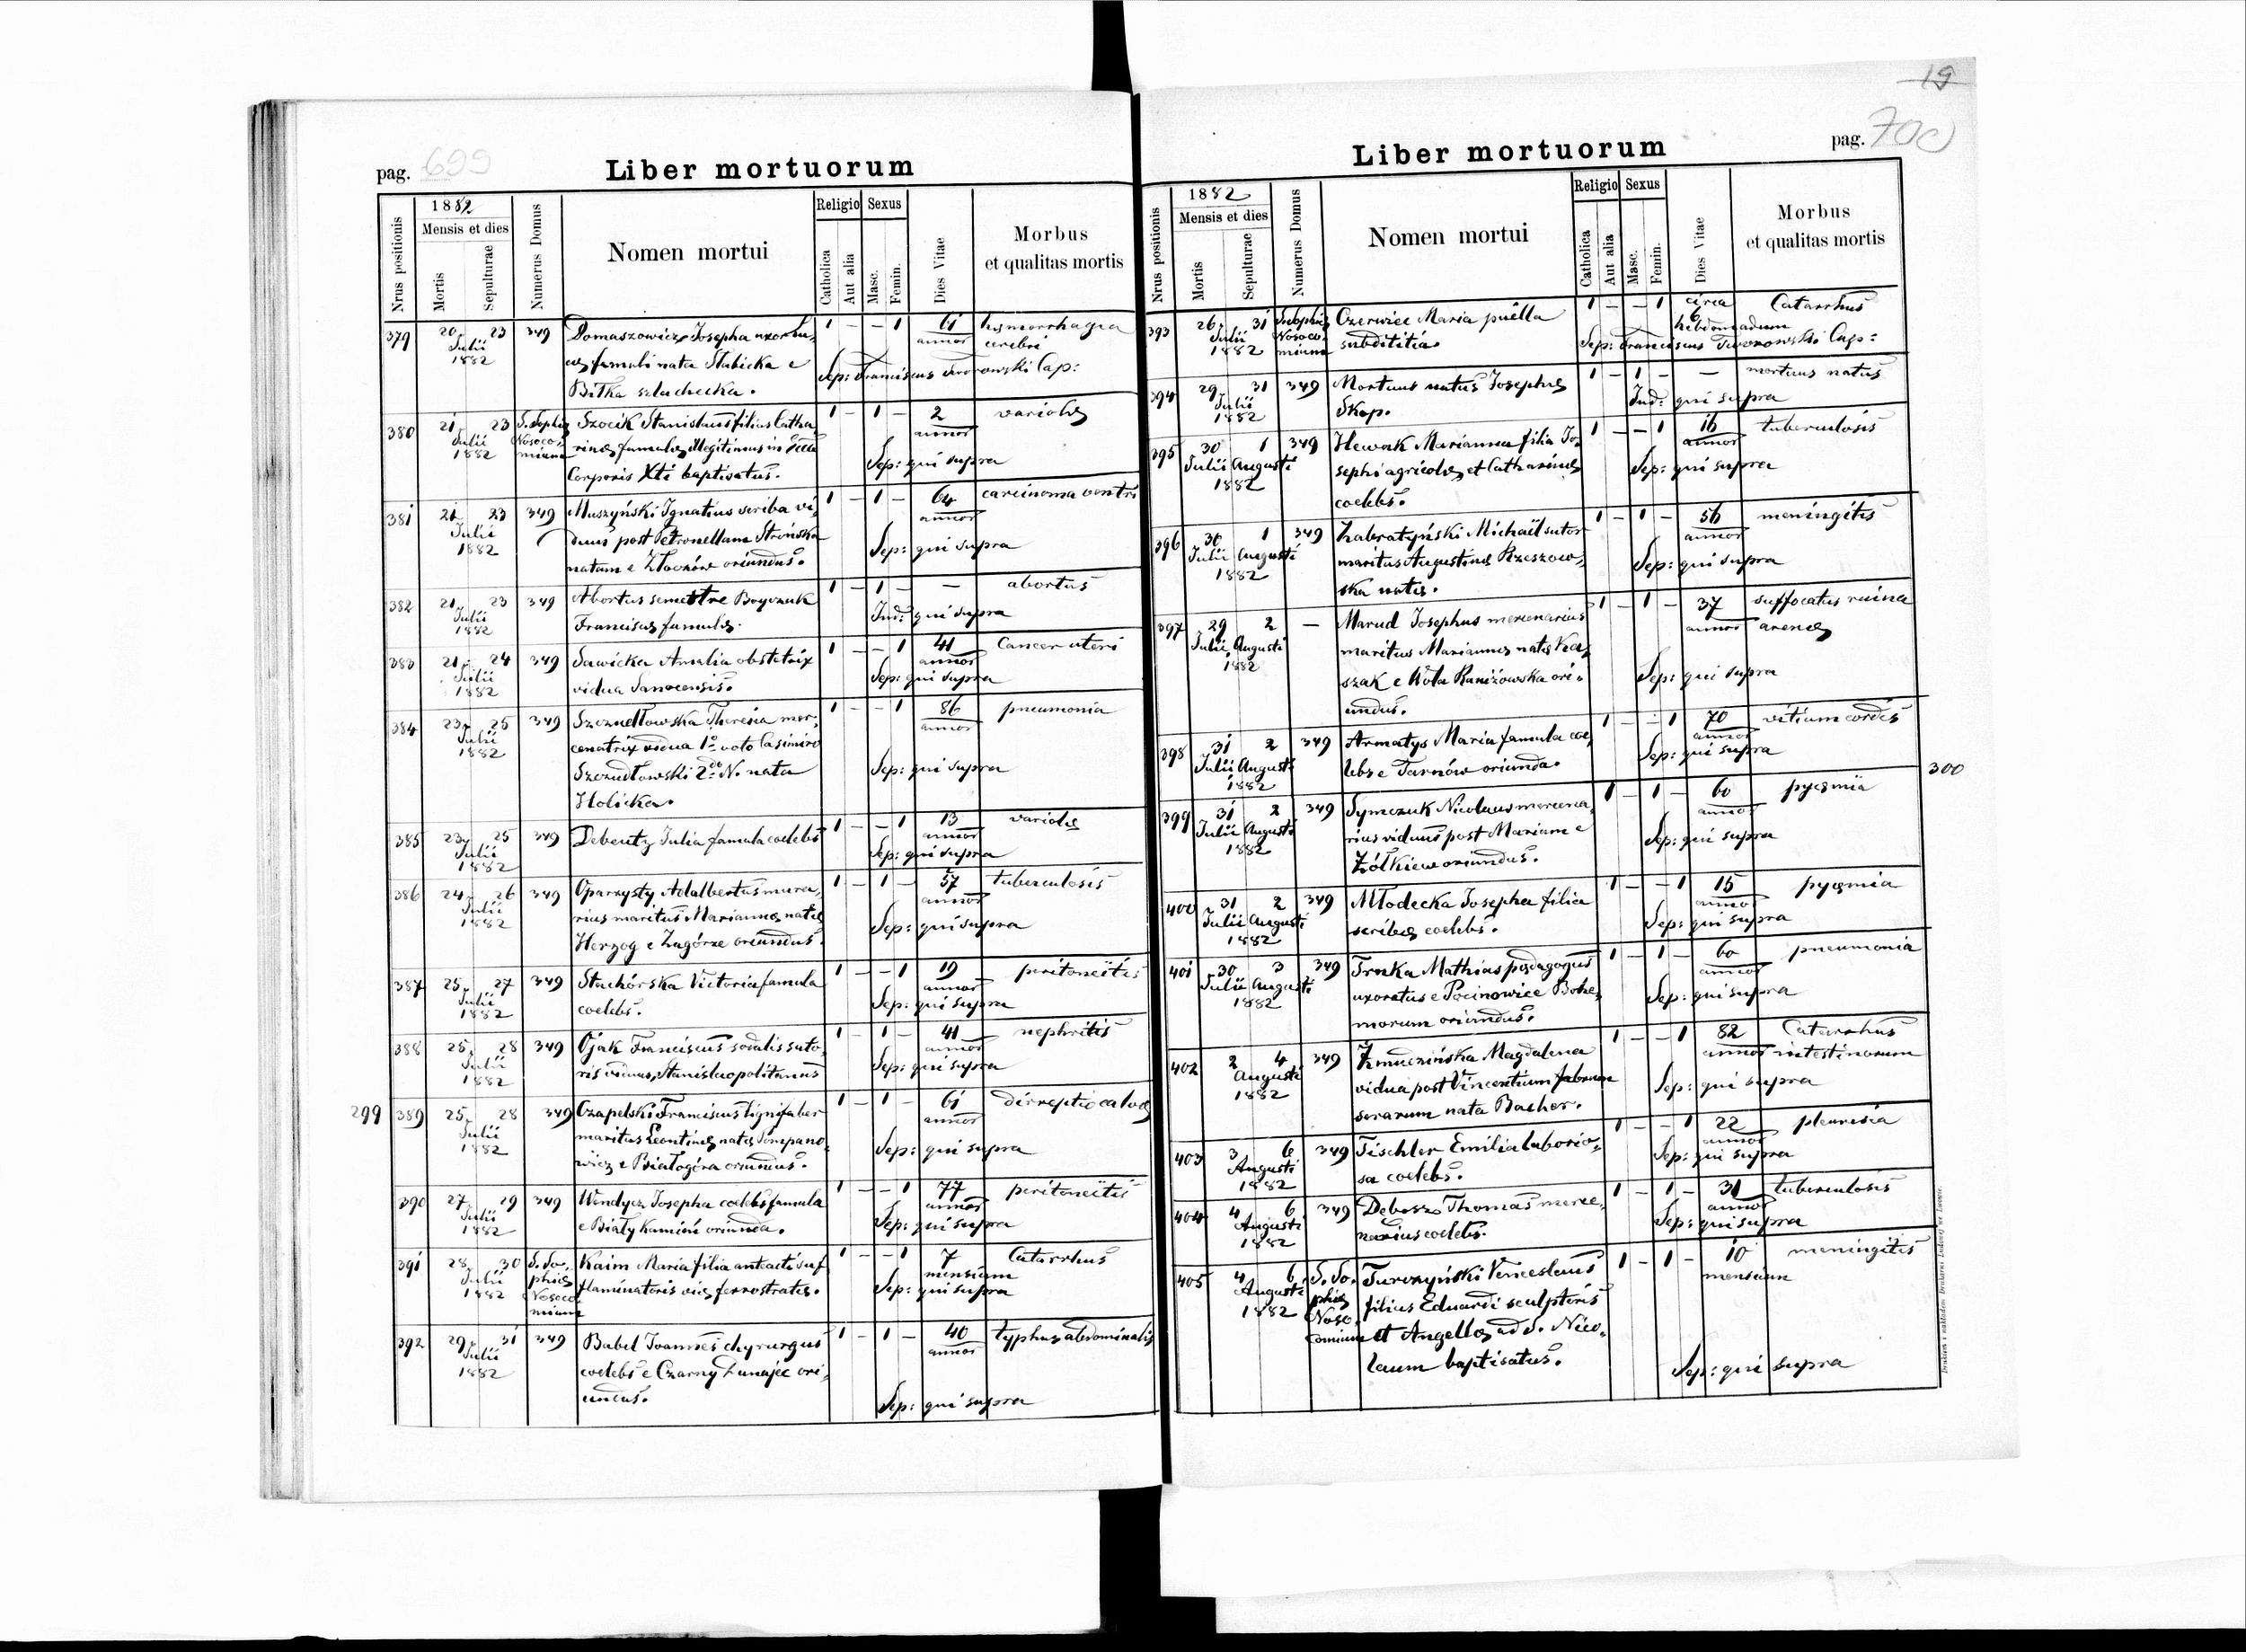 19
pag. 699
Liber mortuorum
Nrus positionis
1882
Mensis et dies
Mortis
Sepulturae
Numerus Domus
Nomen mortui
Religio
Catholica
Aut alia
Sexus
Masc.
Femin.
Dies Vitae
Morbus
et qualitas mortis
379 20. 23 349 Domaszowicz Josepha uxor Lu- 1 — — 1 61 hæmorrhagia
Julii annor cerebri
1882 cæ famuli nata Stabicka e Sep: Franciscus Tworowski Cap:
Bitka szlachecka.
380 21. 23 S. Sophiæ Szocik Stanislaus filius Catha- 1 — 1 — 2 variolæ
Julii Nosoco- rinæ famulæ illegitimus in annor
1882 mium Corporis Xti baptisatus. Sep: qui supra
381 21. 23 349 Muszyński Ignatius scriba vi- 1 — 1 — 64 carcinoma ventri
Julii duus post Petronellam Strońska annor
1882 natam e Złoczów oriundus. Sep: qui supra
382 21. 23 349 Abortus semestre Boyczuk 1 — 1 — — abortus
Julii Franciscæ famulæ. Ind: qui supra
1882
383 21. 24 349 Sawicka Amalia obstetrix 1 — — 1 41 Cancer uteri
Julii vidua Sanocensis. annor
1882 Sep: qui supra
384 23. 25 349 Szczudłowska Theresia mer- 1 — — 1 86 pneumonia
Julii cenatrix vidua 1º voto Casimiro annor
1882 Szczudłowski 2do N. nata Sep: qui supra
Holicka.
385 23. 25 349 Debentz Julia famula coelebs 1 — — 1 13 variolæ
Julii annor
1882 Sep: qui supra
386 24. 26 349 Oparzysty Adalbertus mura- 1 — 1 — 57 tuberculosis
Julii rius maritus Mariannæ natæ annor
1882 Herzog e Zagórze oriundus. Sep: qui supra
387 25. 27 349 Stachórska Victoria famula 1 — — 1 19 peritoneitis
Julii coelebs. annor
1882 Sep: qui supra
388 25. 28 349 Ojak Franciscus sodalis suto- 1 — 1 — 41 nephritis
Julii ris viduus, Stanislaopolitanus annor
1882 Sep: qui supra
299 389 25. 28 349 Czapelski Franciscus lignifaber 1 — 1 — 61 dirreptio calvæ
Julii maritus Leontinæ natæ Pompano- annor
1882 wicz e Białogóra oriundus. Sep: qui supra
390 27 29 349 Wendycz Josepha coelebs famula 1 — — 1 77 peritoneitis
Julii e Biały Kamień oriunda. annor
1882 Sep: qui supra
391 28. 30 S. So- Kaim Maria filia anteacti suf- 1 — — 1 7 Catarrhus
Julii phiæ flaminatoris viæ ferrostratæ. mensium
1882 Nosoco- Sep: qui supra
mium
392 29. 31 349 Babel Joannes chyrurgus 1 — 1 — 40 typhus abdominalis
Julii coelebs e Czarny Dunajec ori- annor
1882 undus. Sep: qui supra
pag. 700
Liber mortuorum
Nrus positionis
1882
Mensis et dies
Mortis
Sepulturae
Numerus Domus
Nomen mortui
Religio
Catholica
Aut alia
Sexus
Masc.
Femin.
Dies Vitae
Morbus
et qualitas mortis
393 26. 31 S. Sophiæ Czerwiec Maria puella 1 — — 1 circa Catarrhus
Julii Nosoco- subdititia. 6 hebdomadum
1882 mium Sep: Franciscus Tworowski Cap:
394 29. 31 349 Mortuus natus Josephus 1 — 1 — — mortuus natus
Julii Skop. Ind: qui supra
1882
395 30 1 349 Hewak Marianna filia Jo- 1 — — 1 16 tuberculosis
Julii Augusti sephi agricolæ et Catharinæ annor
1882 coelebs. Sep: qui supra
396 30 1 349 Zabratyński Michaël sutor 1 — 1 — 56 meningitis
Julii Augusti maritus Augustinæ Rzeszow- annor
1882 ska natæ. Sep: qui supra
397 29 2 — Marud Josephus mercenarius 1 — 1 — 37 suffocatus ruina
Julii Augusti maritus Mariannæ natæ Ka- annor arenæ
1882 szak e Wola Raniżowska ori- Sep: qui supra
undus.
398 31 2 349 Armatys Maria famula coe- 1 — — 1 70 vitium cordis
Julii Augusti lebs e Tarnów oriunda. annor
1882 Sep: qui supra
300
399 31 2 349 Symczuk Nicolaus mercena- 1 — 1 — 60 pyæmia
Julii Augusti rius viduus post Mariam e annor
1882 Żółkiew oriundus. Sep: qui supra
400 31 2 349 Młodecka Josepha filia 1 — — 1 15 pyæmia
Julii Augusti scribæ coelebs. annor
1882 Sep: qui supra
401 30 3 349 Trnka Mathias pædagogus 1 — 1 — 60 pneumonia
Julii Augusti uxoratus e Pocinowice Bohe- annor
1882 morum oriundus. Sep: qui supra
402 2 4 349 Żmudzińska Magdalena 1 — — 1 82 Catarrhus
Augusti vidua post Vincentium fabrum annor intestinorum
1882 serarum nata Bacher. Sep: qui supra
403 3 6 349 Tischler Emilia laborio- 1 — — 1 22 pleuresia
Augusti sa coelebs. annor
1882 Sep: qui supra
404 4 6 349 Debosz Thomas merce- 1 — 1 — 31 tuberculosis
Augusti narius coelebs. annor
1882 Sep: qui supra
405 4 6 S. So- Turczyński Venceslaus 1 — 1 — 10 meningitis
Augusti phiæ filius Eduardi sculptoris mensium
1882 Noso- et Angellæ ad S. Nico-
comium laum baptisatus. Sep: qui supra